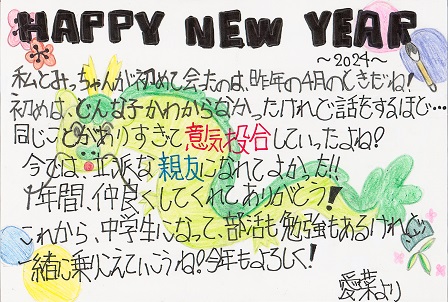 HAPPY NEW YEAR
～2024～
私とみっちゃんが初めて会ったのは、昨年の4月のときだね！
初めは、どんな子かわからなかったけれど話をするほど…
同じことがありすぎて意気投合していったよね？
今では、立派な親友になれてよかった!!
1年間、仲良くしてくれてありがとう！
これから、中学生になって、部活も勉強もあるけれど、
一緒に乗りこえていこうね！今年もよろしく！
愛葉より